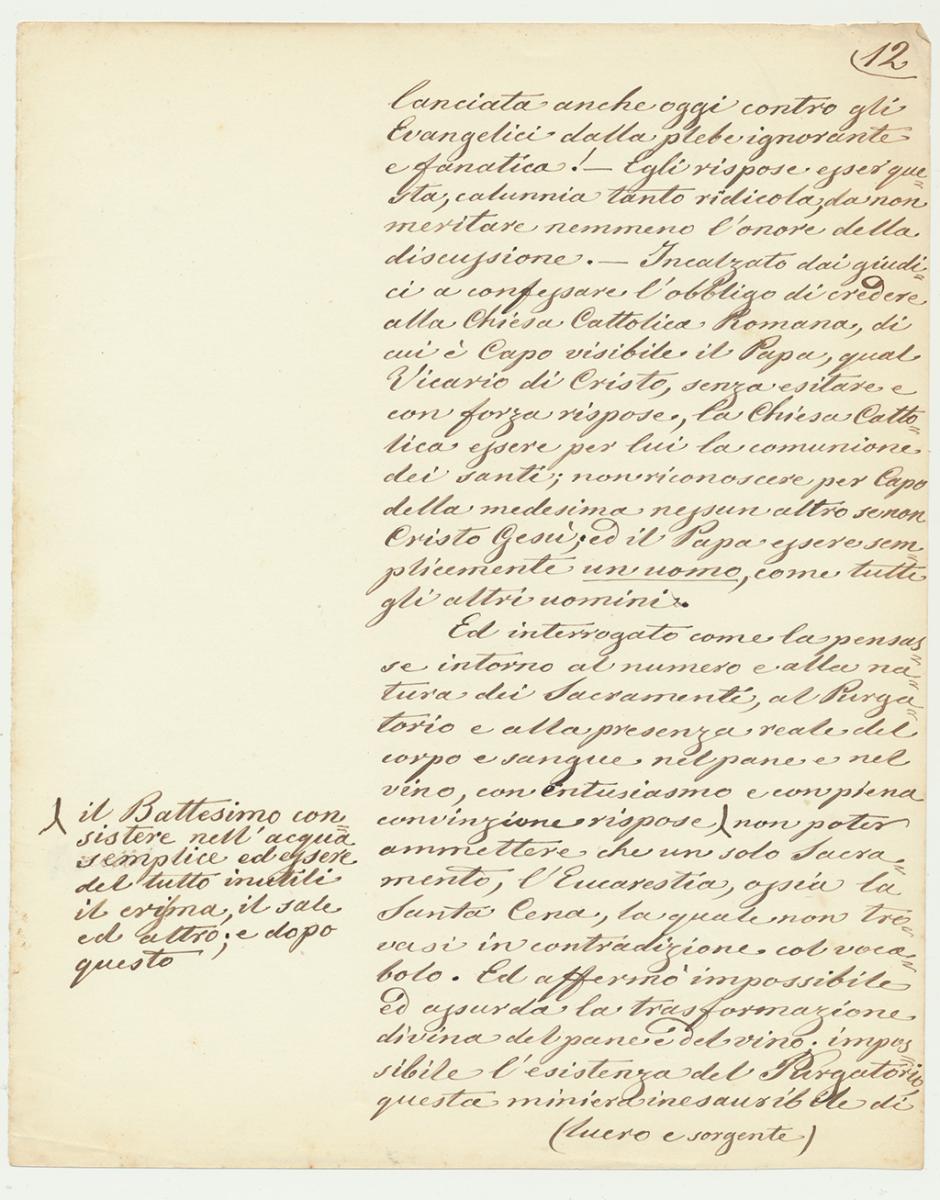 12
lanciata anche oggi contro gli
Evangelici dalla plebe ignorante
e fanatica! — Egli rispose esser que=
sta, calunnia tanto ridicola, da non
meritare nemmeno l'onore della
discussione. — Incalzato dai giudi=
ci a confessare l'obbligo di credere
alla Chiesa Cattolica Romana, di
cui è Capo visibile il Papa, qual
Vicario di Cristo, senza esitare e
con forza rispose, la Chiesa Catto=
lica essere per lui la comunione
dei santi; non riconoscere per Capo
della medesima nessun altro se non
Cristo Gesù; ed il Papa essere sem=
plicemente un uomo, come tutti
gli altri uomini.
Ed interrogato come la pensas=
se intorno al numero e alla na=
tura dei Sacramenti, al Purga=
torio e alla presenza reale del
corpo e sangue nel pane e nel
vino, con entusiasmo e con piena
convinzione rispose) non poter
ammettere che un solo Sacra=
mento, l'Eucarestia, ossia la
Santa Cena, la quale non tro=
vasi in contradizione col voca=
bolo. Ed affermò impossibile
ed assurda la trasformazione
divina del pane e del vino; impos=
sibile l'esistenza del Purgatorio,
questa miniera inesauribile di
(lucro e sorgente)
il Battesimo con=
sistere nell'acqua
semplice ed essere
del tutto inutili
il crisma, il sale
ed altro; e dopo
questo